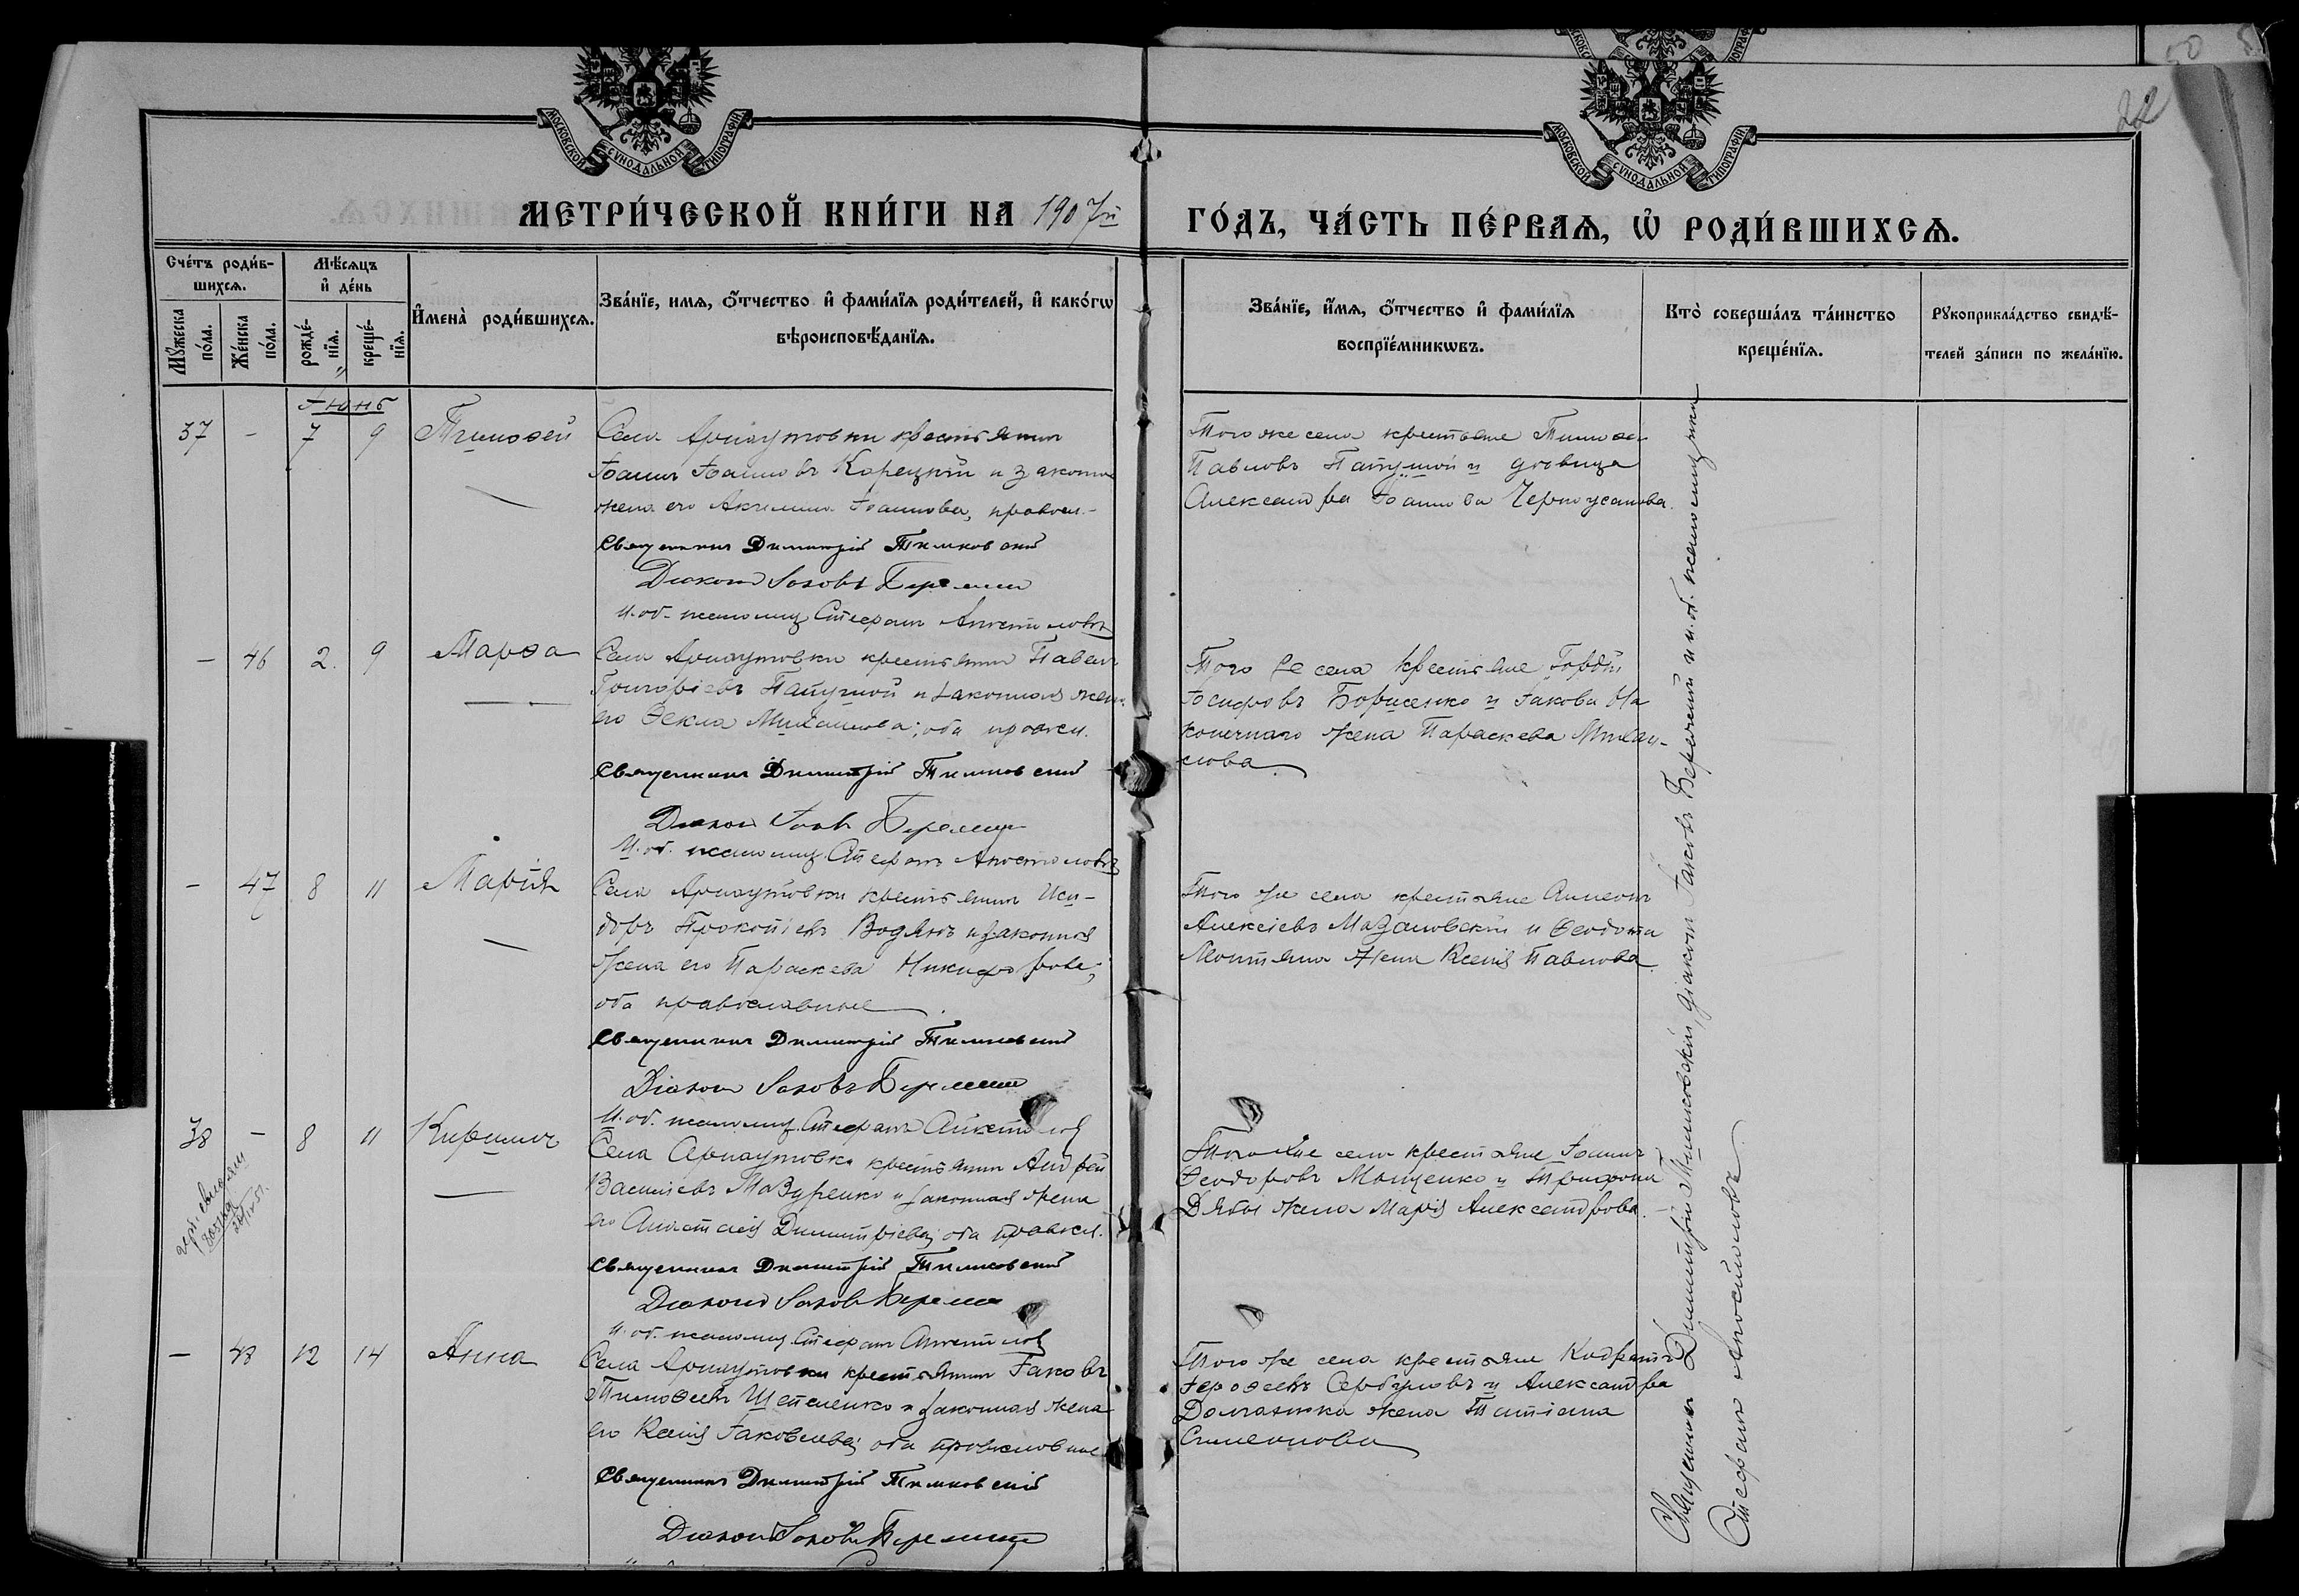 50
22
МОСКОВСКОЙ СѴНОДАЛЬНОЙ ТИПОГРАФІИ
МОСКОВСКОЙ СѴНОДАЛЬНОЙ ТИПОГРАФІИ
МЕТРИ́ЧЕСКОЙ КНИ́ГИ НА 1907й ГО́ДЪ, ЧА́СТЬ ПЕ́РВАѦ, Ѡ҆ РОДИ́ВШИХСѦ.
Сче́тъ роди́в-
шихсѧ.
Мѣ́сѧцъ
и҆ де́нь
Мꙋ́жеска
по́ла.
Же́нска
по́ла.
рожде́-
нїѧ.
креще́-
нїѧ.
И҆мена̀ роди́вшихсѧ.
Зва́нїе, имѧ, ѻ҆́тчество и҆ фами́лїѧ роди́телей, и҆ како́гѡ
вѣроисповѣ́данїѧ.
Зва́нїе, и҆́мѧ, ѻ҆́тчество и҆ фами́лїѧ
воспрїе́мникѡвъ.
Кто̀ соверша́лъ та́инство
креще́нїѧ.
Рꙋкоприкла́дство свидѣ́-
телей за́писи по жела́нїю.
Іюнь
37 - 7 9 Тимоѳей
Села Арнаутовки крестьянин
Іоаннъ Іоанновъ Корецкій и законная
жена его Акилина Іоаннова, правосл.
Священникъ Димитрій Тимковскій
Діаконъ Іаковъ
И. об. псаломщ. Стефанъ Апостоловъ
Того же села крестьяне Тимоѳей
Павловъ Папушой и дѣвица
Александра Іоаннова Черноусанова.
- 46 2 9 Марѳа
Села Арнаутовки крестьянинъ Павелъ
Григоріевъ Папушой и законная жена
его Ѳекла Михаилова; оба правосл.
Священникъ Димитрій Тимковскій
Діаконъ Іаковъ
И. об. псаломщ. Стефанъ Апостоловъ
Того же села крестьяне Гордій
Іосифовъ Борисенко и Іакова На
конечнаго жена Параскева Михаи-
лова.
- 47 8 11 Марія
Села Арнаутовки крестьянинъ Иси-
доръ Прокопіевъ Водянъ и законная
жена его Параскева Никифорова;
оба православные.
Священникъ Димитрій Тимковскій
Діаконъ Іаковъ
И. об. псаломщ. Стефанъ Апостолов
Того же села крестьяне Симеонъ
Алексіевъ Мазановскій и Ѳеодота
жена Ксенія Павлова.
38 - 8 11 Кириллъ
Села Арнаутовки крестьянинъ Андрей
Василіевъ Мазуренко и законная жена
его Анастасія Димитріева; оба правосл.
Священникъ Димитрій Тимковскій
Діаконъ Іаковъ
И. об. псаломщ. Стефанъ Апостолов
Того же села крестьяне Іоаннъ
Ѳеодоровъ Мащенко и Трифона
жена Марія Александрова.
- 48 12 14 Анна
Села Арнаутовки крестьянинъ Іаковъ
Тимоѳеевъ Щепленко и законная жена
его Ксенія Іаковлева; оба православные
Священникъ Димитрій Тимковскій
Діаконъ Іаковъ
Того же села крестьяне Кодратъ
Іероѳеевъ Сербуловъ и Александра
жена Татіана
Симеонова
Священникъ Димитрій Тимковскій, діаконъ Іаковъ и и. об. псаломщика
Стефанъ Апостоловъ.